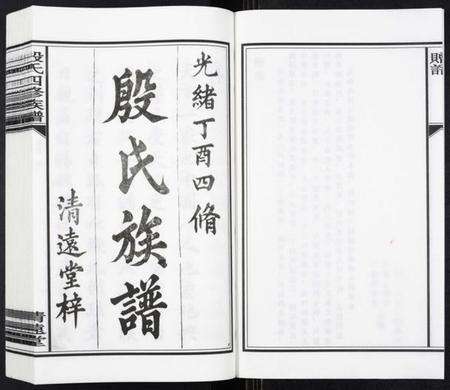 光緒丁酉四脩
殷氏族譜
清遠堂梓
殷氏四修族譜
清遠堂